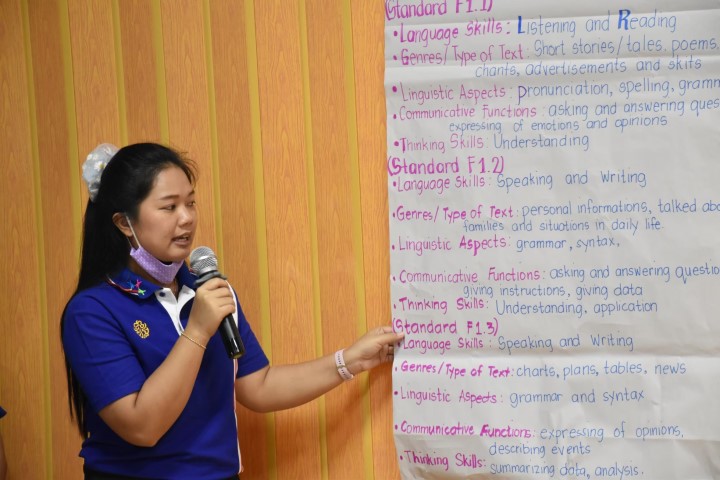 (Standard F1.1)
• Language Skills: Listening and Reading
• Genres/Type of Text: Short stories/tales, poems,
charts, advertisements and skits
• Linguistic Aspects: pronunciation, spelling, gramm
• Communicative Functions: asking and answering ques
expressing of emotions and opinions
• Thinking Skills: Understanding
(Standard F1.2)
• Language Skills: Speaking and Writing
• Genres/Type of Text: personal informations, talked abo
families and situations in daily life.
• Linguistic Aspects: grammar, syntax,
• Communicative Functions: asking and answering question
giving instructions, giving data
• Thinking Skills: Understanding, application
(Standard F1.3)
• Language Skills: Speaking and Writing
• Genres/Type of Text: charts, plans, tables, news
• Linguistic Aspects: grammar and syntax
• Communicative Functions: expressing of opinions,
describing events
• Thinking Skills: summarizing data, analysis.